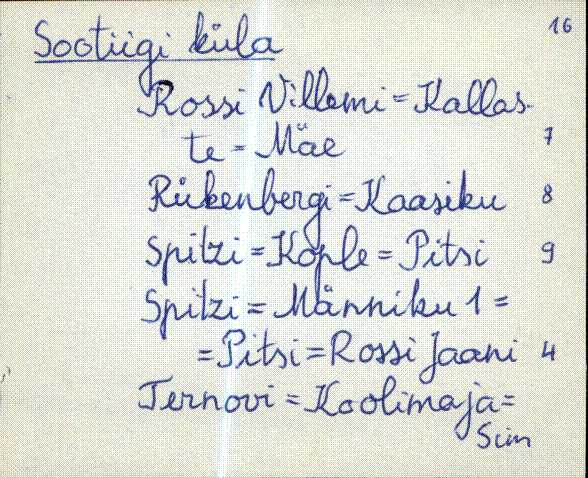 Sootiigi küla 16
Rossi Villemi = Kallas-
te = Mäe 7
Rükenbergi = Kaasiku 8
Spitzi = Kople = Pitsi 9
Spitzi = Männiku 1 =
= Pitsi = Rossi Jaani 4
Ternovi = Koolimaja =
Siim